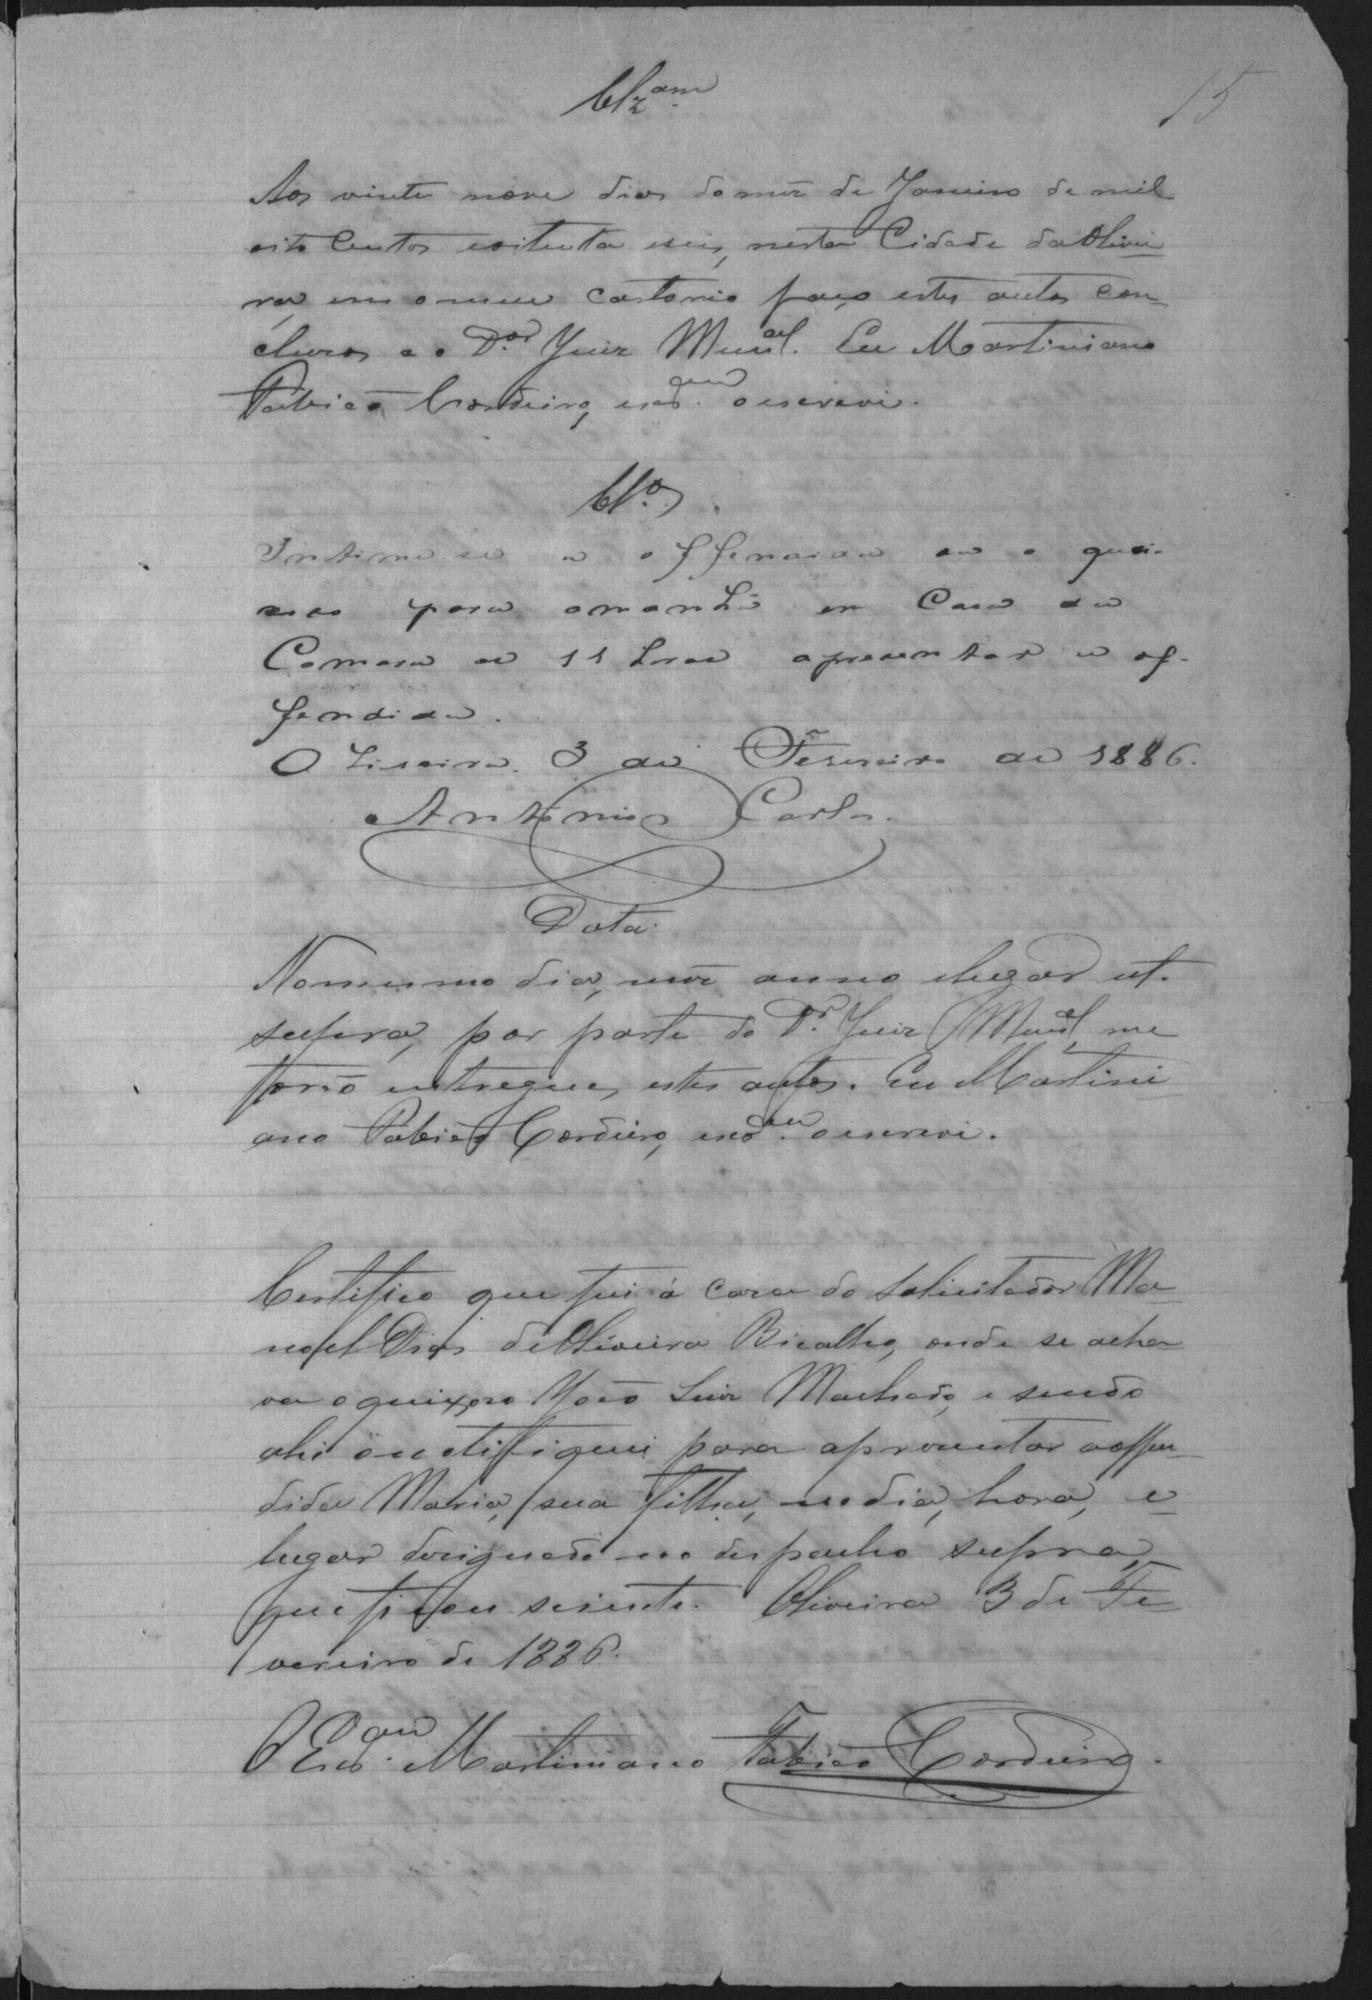 Clzam.
15
Aos vinte nove dias do mez de Janeiro de mil
oito centos e oitenta e seis, nesta Cidade da Olivei
ra, em o meu cartorio faço estes autos con-
cluzos ao Dor. Juiz Munal. Eu Martiniano
Fabião Cordeiro, escram. o escrevi.
Clos.
Intime-se a offendida ou o quei-
xoso para amanhã em Casa da
Camara as 11 horas apresentar a of-
fendida.
Oliveira. 3 de Fevereiro de 1886.
Antonio Carlos.
Data.
No mesmo dia, mez anno e lugar ut
supra, por parte do Dr. Juiz Munal, me
forão entregues, estes autos. Eu Martini
ano Fabião Cordeiro, escram. o escrevi.
Certifico que fui á casa do Solicitador Ma
noel Dias de Oliveira Bicalho, onde se acha
va o queixoso João Luiz Machado, e sendo
ahi o notifiquei para aprezentar a offen
dida Maria, sua filha, no dia, hora, e
lugar dezignado no despacho supra,
que ficou sciente. Oliveira 3 de Fe
vereiro de 1886.
O Escram. Martiniano Fabião Cordeiro.